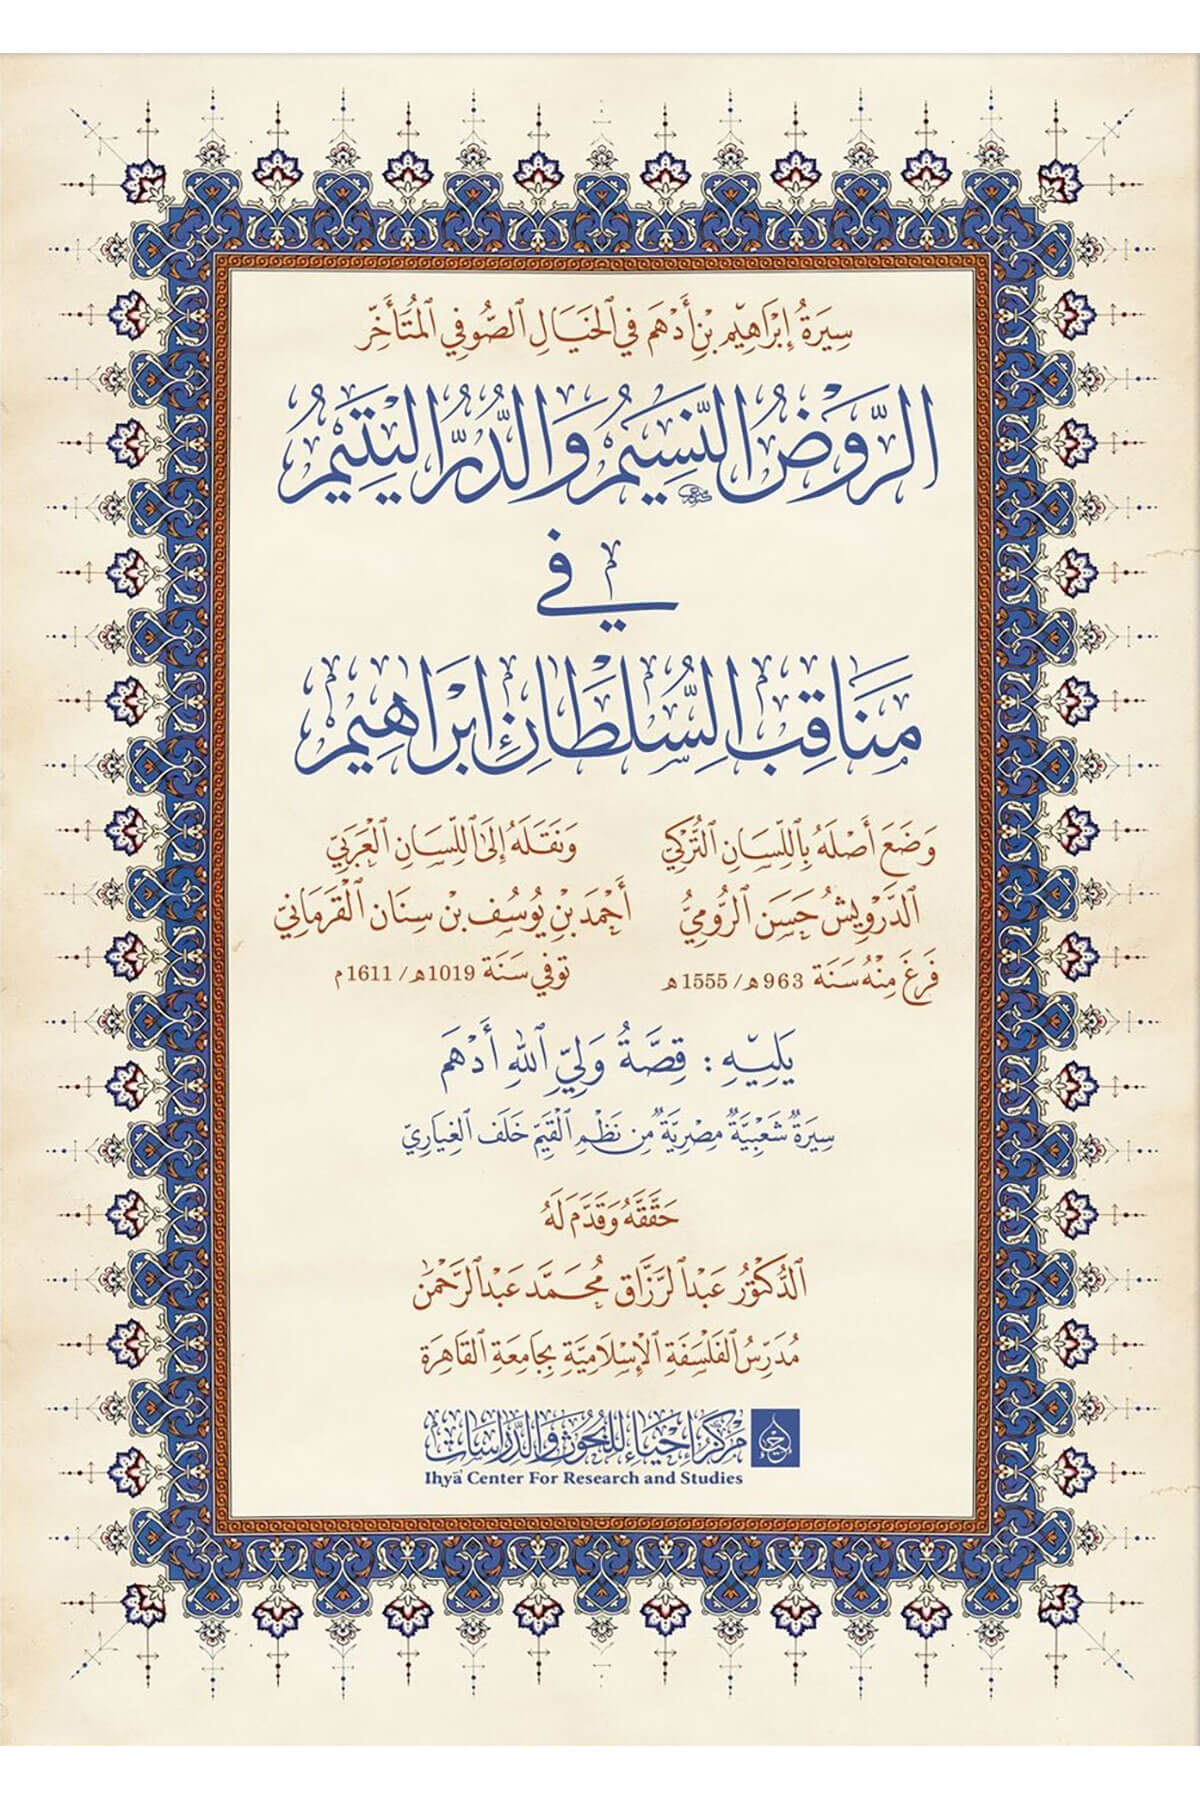 سِيرَةُ إِبْرَاهِيمَ بْنِ أَدْهَمَ فِي ٱلْخَيَالِ ٱلصُّوفِي ٱلْمُتَأَخِّر
الرَّوْضُ النَّسِيمُ وَالدُّرُّ الْيَتِيمُ
فِي
مَنَاقِبِ السُّلْطَانِ إِبْرَاهِيمَ
وَضَعَ أَصْلَهُ بِاللِّسَانِ ٱلتُّرْكِي
ٱلدَّرْوِيشُ حَسَن ٱلرُّومِيُّ
فَرَغَ مِنْهُ سَنَة 963 هـ/ 1555 هـ
وَنَقَلَهُ إِلَى ٱللِّسَانِ ٱلْعَرَبِيِّ
أَحْمَد بْنِ يُوسُف بْنِ سِنَان ٱلْقَرَمَانِيّ
توفي سَنَة 1019 هـ/ 1611 م
يَلِيْهِ : قِصَّةُ وَلِيِّ ٱللهِ أَدْهَم
سِيرَةٌ شَعْبِيَّةٌ مِصْرِيَّةٌ مِن نَظْمِ ٱلْقَيِّمِ خَلَف ٱلْغِيَارِيّ
حَقَّقَهُ وَقَدَّمَ لَهُ
ٱلدُّكْتُورُ عَبْدُ ٱلرَّزَّاق مُحَمَّد عَبْدُ ٱلرَّحْمَٰن
مُدَرِّسُ ٱلْفَلْسَفَةِ ٱلْإِسْلَامِيَّةِ بِجَامِعَةِ ٱلْقَاهِرَة
مركز إحياء للبحوث والدراسات
Iḥyāʾ Center For Research and Studies